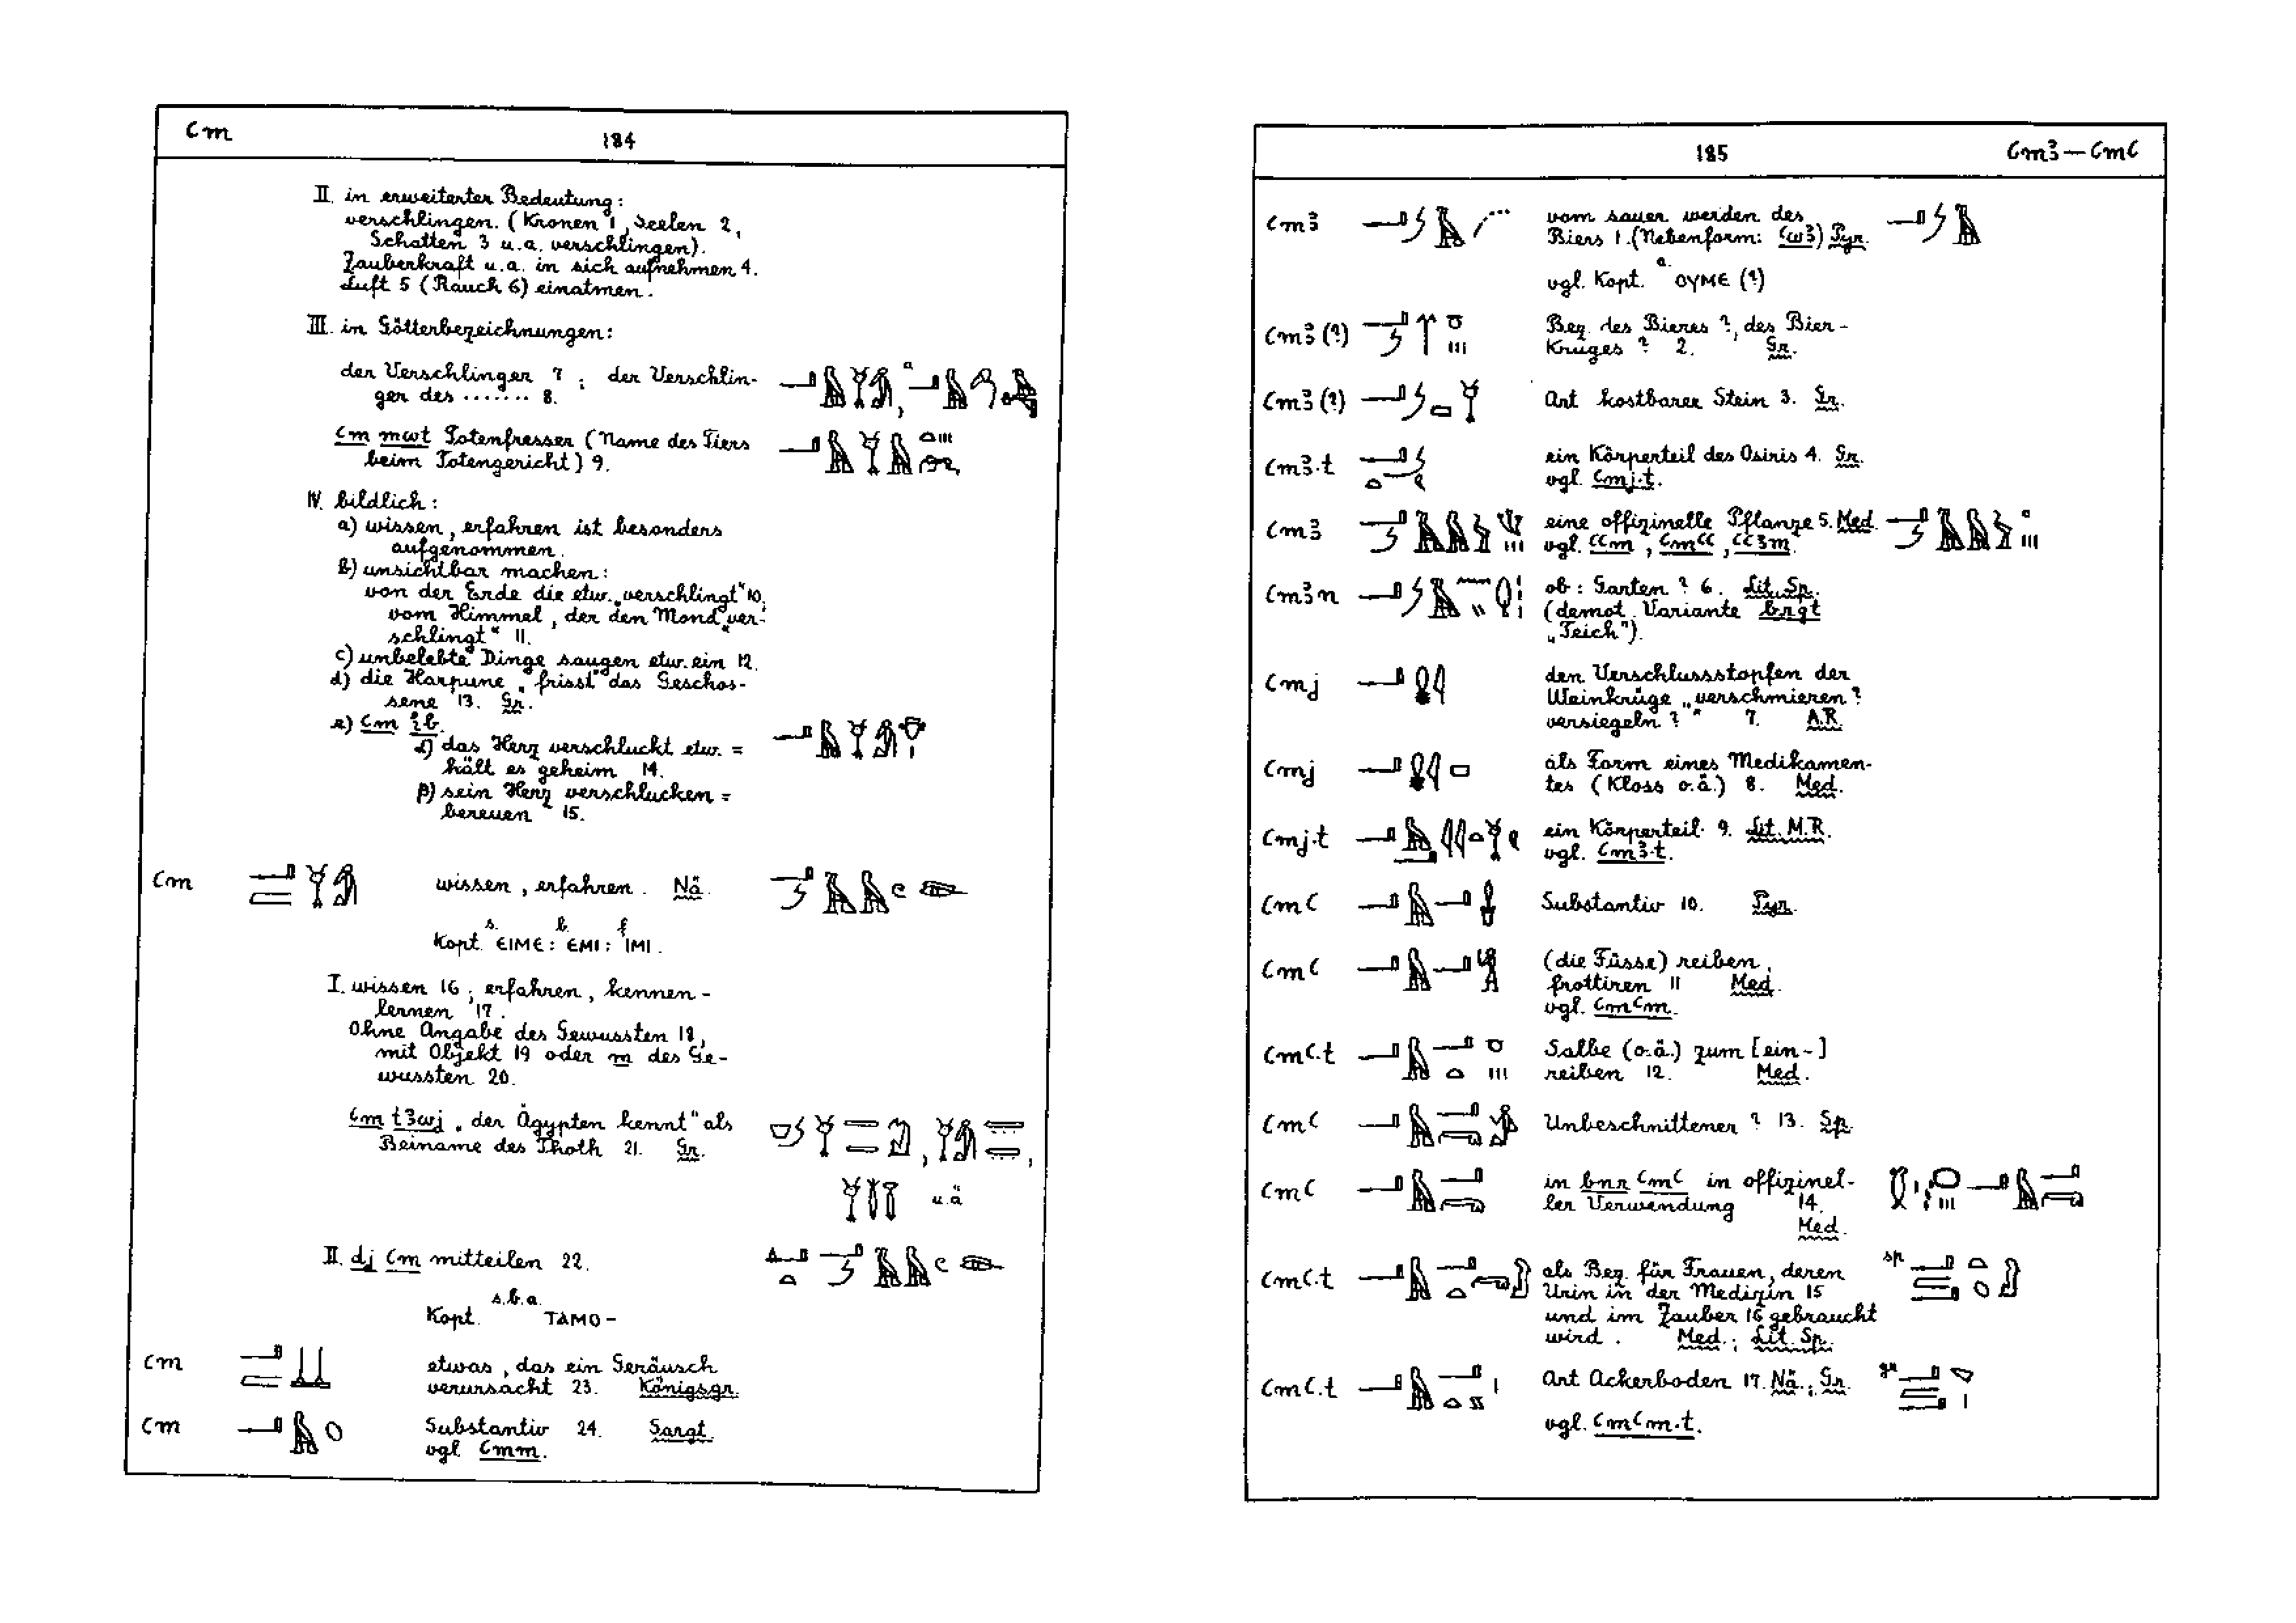 ꜥm
184
II. in erweiterter Bedeutung:
verschlingen. (Kronen 1, Seelen 2,
Schatten 3 u.a. verschlingen).
Zauberkraft u.a. in sich aufnehmen 4.
Luft 5 (Rauch 6) einatmen.
III. in Götterbezeichnungen:
der Verschlinger 7; der Verschlin-
ger des ....... 8.
ꜥm mwt Totenfresser (Name des Tiers
beim Totengericht) 9.
IV. bildlich:
a) wissen, erfahren ist besonders
aufgenommen.
b) unsichtbar machen:
von der Erde die etw. „verschlingt“ 10,
vom Himmel, der den Mond „ver-
schlingt“ 11.
c) unbelebte Dinge saugen etw. ein 12.
d) die Harpune „frisst“ das Geschos-
sene 13. Gr.
e) ꜥm ἰb
α) das Herz verschluckt etw. =
hält es geheim 14.
β) sein Herz verschlucken =
bereuen 15.
ꜥm wissen, erfahren. Nä.
Kopt. s. ⲈⲒⲘⲈ: b. ⲈⲘⲒ: f. ⲒⲘⲒ.
I. wissen 16; erfahren, kennen-
lernen 17.
Ohne Angabe des Gewussten 18,
mit Objekt 19 oder m des Ge-
wussten 20.
ꜥm tꜣwj „der Ägypten kennt“ als
Beiname des Thoth 21. Gr.
u.ä
II. dj ꜥm mitteilen 22.
Kopt. s.b.a. ⲦⲀⲘⲞ-
ꜥm etwas, das ein Geräusch
verursacht 23. Königsgr.
ꜥm Substantiv 24. Sargt.
vgl ꜥmm.
185
ꜥmꜣ — ꜥmꜥ
ꜥmꜣ vom sauer werden des
Biers 1. (Nebenform: ꜥwꜣ) Pyr.
vgl. Kopt. a. ⲞⲨⲘⲈ (?)
ꜥmꜣ (?) Bez. des Bieres ?, des Bier-
kruges ? 2. Gr.
ꜥmꜣ (?) Art kostbarer Stein 3. Gr.
ꜥmꜣ.t ein Körperteil des Osiris 4. Gr.
vgl. ꜥmj.t.
ꜥmꜣ eine offizinelle Pflanze 5. Med.
vgl. ꜥꜥm, ꜥmꜥꜥ, ꜥꜥꜣm.
ꜥmꜣn ob: Garten ? 6. Lit. Sp.
(demot. Variante brgt
„Teich“).
ꜥmj den Verschlussstopfen der
Weinkrüge „verschmieren ?
versiegeln ?“ 7. A.R.
ꜥmj als Form eines Medikamen-
tes (Kloss o.ä.) 8. Med.
ꜥmj.t ein Körperteil 9. Lit. M.R.
vgl. ꜥmꜣ.t.
ꜥmꜥ Substantiv 10. Pyr.
ꜥmꜥ (die Füsse) reiben,
frottiren 11 Med.
vgl. ꜥmꜥm.
ꜥmꜥ.t Salbe (o.ä.) zum [ein-]
reiben 12. Med.
ꜥmꜥ Unbeschnittener ? 13. Sp.
ꜥmꜥ in bnr ꜥmꜥ in offizinel-
ler Verwendung 14.
Med.
ꜥmꜥ.t als Bez. für Frauen, deren sp
Urin in der Medizin 15
und im Zauber 16 gebraucht
wird. Med.; Lit. Sp.
ꜥmꜥ.t Art Ackerboden 17. Nä.; Gr. gr
vgl. ꜥmꜥm.t.